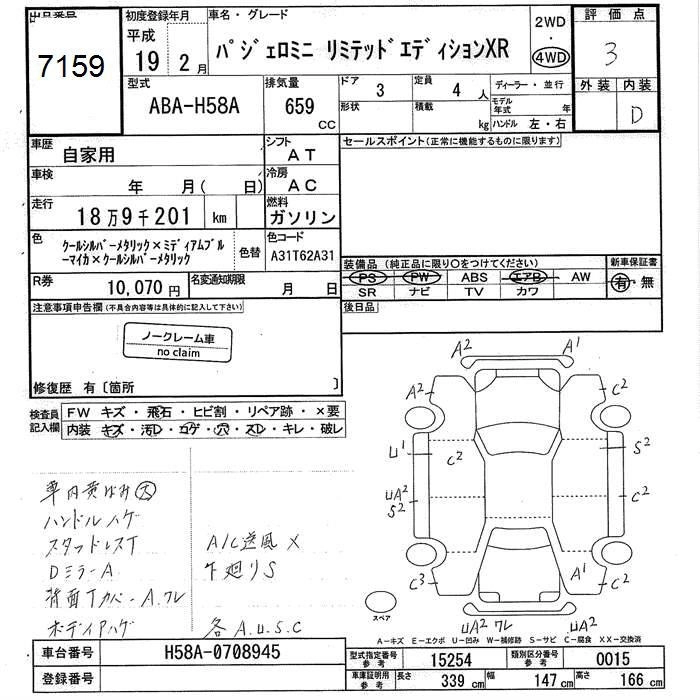 出品番号
7159
初度登録年月
平成
19 2 月
車名・グレード
パジェロミニ リミテッドエディションXR
2WD
・
4WD
評価点
3
型式
ABA-H58A
排気量
659
cc
ドア
3
形状
定員
4 人
積載
kg
ディーラー・並行
モデル年式 年
ハンドル 左・右
外装 内装
D
車歴
自家用
シフト
AT
セールスポイント(正常に機能するものに限ります)
車検
年 月( 日)
冷房
AC
走行
18万9千201 km
燃料
ガソリン
色
クールシルバーメタリック×ミディアムブル
ーマイカ×クールシルバーメタリック
色替
色コード
A31T62A31
装備品(純正品に限り○をつけてください)
PS PW ABS エアB AW
SR ナビ TV カワ
新車保証書
有・無
R券
10,070円
名変通知期限
月 日
後日品
注意事項申告欄(不具合内容等は具体的に記入して下さい)
ノークレーム車
no claim
修復歴 有〔箇所 〕
検査員
記入欄
FW キズ・飛石・ヒビ割・リペア跡・×要
内装・キズ・汚D・コゲ・穴・スレ・キレ・破レ
車内黄ばみ大
ハンドルハゲ
スタッドレスT
DミラーA
背面Tカバー A.ワレ
ボディハゲ
A/C送風×
下廻りS
各A.U.S.C
A2 A1
A2 C2
U1 C2 S2
UA2 S2 C2
C3 A1 C2
UA2 ワレ UA2
スペア
A-キズ E-エクボ U-凹み W-補修跡 S-サビ C-腐食 XX-交換済
車台番号
H58A-0708945
型式指定番号
参考
15254
類別区分番号
参考
0015
登録番号
車庫証明用
参考
長さ 339 cm 幅 147 cm 高さ 166 cm